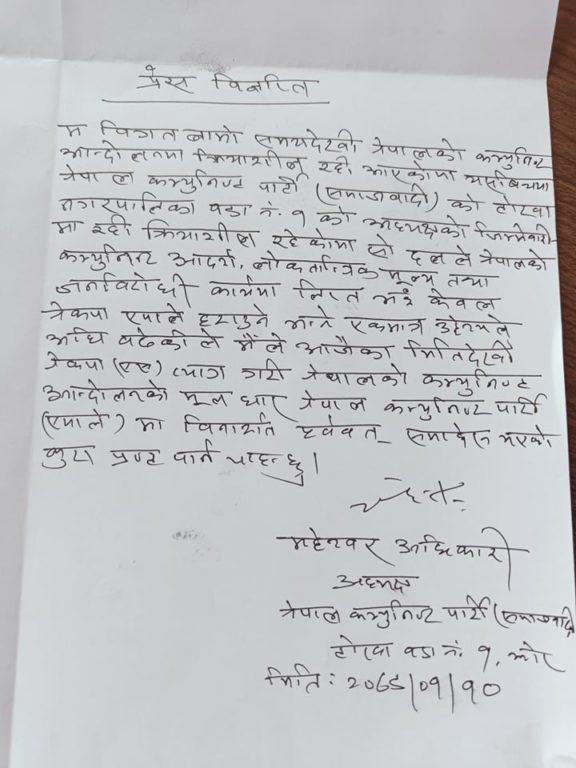 प्रेस विज्ञप्ति
म विगत लामो समयदेखी नेपालको कम्युनिष्ट
आन्दोलनमा क्रियाशील रही आएकोमा यसबिचमा
नेपाल कम्युनिष्ट पार्टी (समाजवादी) को टोखा
नगरपालिका वडा नं. १ को अध्यक्षको जिम्मेवारी
मा रही क्रियाशील रहेकोमा सो दलले नेपालको
कम्युनिष्ट आदर्श, लोकतान्त्रिक मूल्य तथा
जनविरोधी कार्यमा लिप्त भई केवल
नेकपा एमाले हराउने भन्ने एकमात्र उद्देश्यले
अघि बढेकोले मैले आजैका मितिदेखी
नेकपा (एस) त्याग गरी नेपालको कम्युनिष्ट
आन्दोलनको मूल धार नेपाल कम्युनिष्ट पार्टी
(एमाले) मा विनाशर्त समावेश भएको
कुरा प्रष्ट पार्न चाहन्छु।
महेश्वर अधिकारी
अध्यक्ष
नेपाल कम्युनिष्ट पार्टी (समाजवादी)
टोखा वडा नं. १,
मिति: २०७९/०७/१०